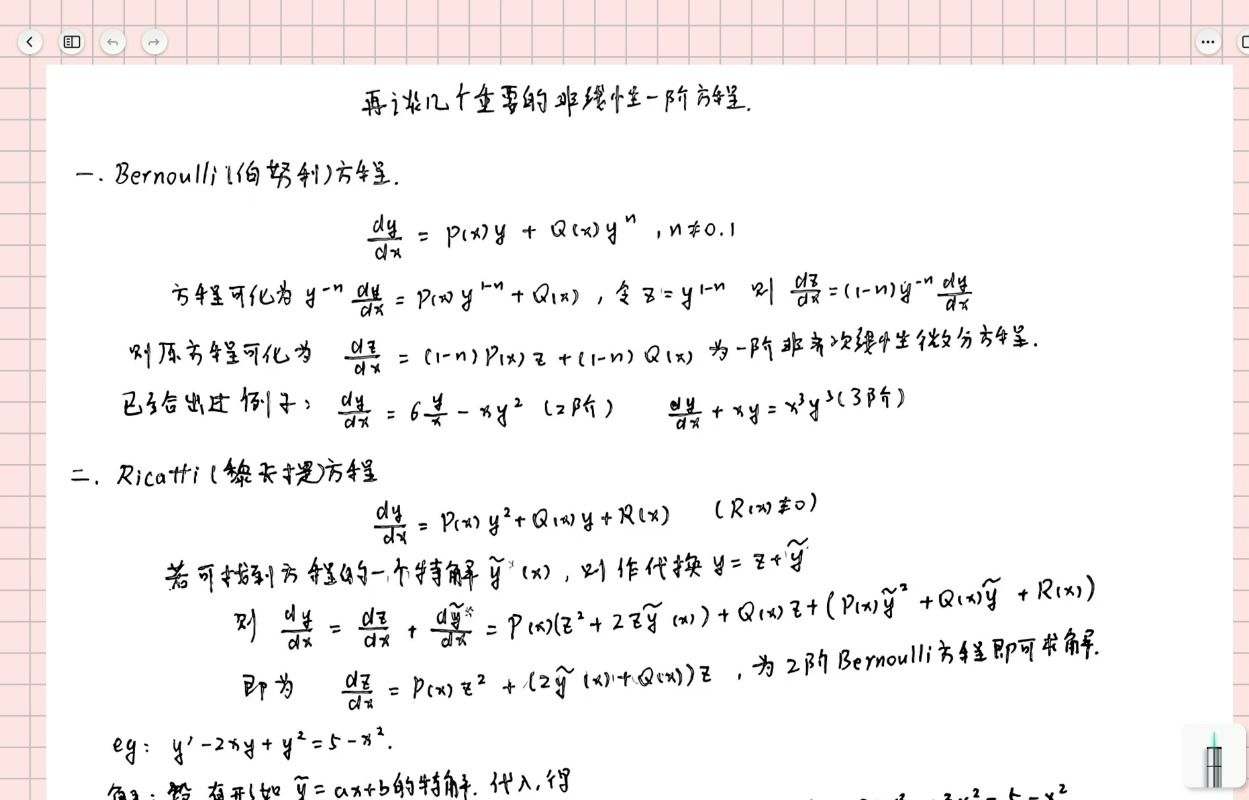 再谈几个重要的非线性一阶方程.
一. Bernoulli(伯努利)方程.
dy/dx = P(x)y + Q(x)yⁿ , n≠0.1
方程可化为 y⁻ⁿ dy/dx = P(x)y¹⁻ⁿ + Q(x) , 令 z = y¹⁻ⁿ 则 dz/dx = (1-n)y⁻ⁿ dy/dx
则原方程可化为 dz/dx = (1-n)P(x)z + (1-n)Q(x) 为一阶非齐次线性微分方程.
已给出过例子: dy/dx = 6 y/x - xy² (2阶) dy/dx + xy = x³y³ (3阶)
二. Ricatti(黎卡提)方程
dy/dx = P(x)y² + Q(x)y + R(x) (R(x)≢0)
若可找到方程的一个特解 ỹ(x), 则作代换 y = z + ỹ
则 dy/dx = dz/dx + dỹ/dx = P(x)(z² + 2zỹ(x)) + Q(x)z + (P(x)ỹ² + Q(x)ỹ + R(x))
即为 dz/dx = P(x)z² + (2ỹ(x) + Q(x))z , 为2阶Bernoulli方程即可求解.
eg: y′ - 2xy + y² = 5 - x².
解: 设有形如 ỹ = ax+b 的特解. 代入, 得
= 5 - x²